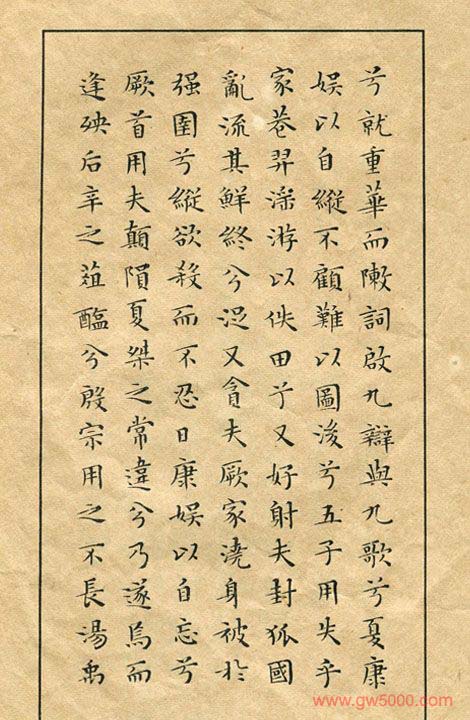 兮就重華而敶詞啟九辯與九歌兮夏康
娛以自縱不顧難以圖後兮五子用失乎
家巷羿淫游以佚田兮又好射夫封狐國
亂流其鮮終兮浞又貪夫厥家澆身被於
强圉兮縱欲殺而不忍日康娛以自忘兮
厥首用夫顛隕夏桀之常違兮乃遂焉而
逢殃后辛之菹醢兮殷宗用之不長湯禹
www.gw5000.com